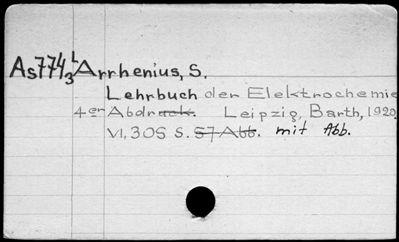 As774 L/3 Arrhenius, S.
Lehrbuch der Elektrochemie
4er Abdruck. Leipzig, Barth, 1920.
VI, 305 S. 57 Abb. mit Abb.